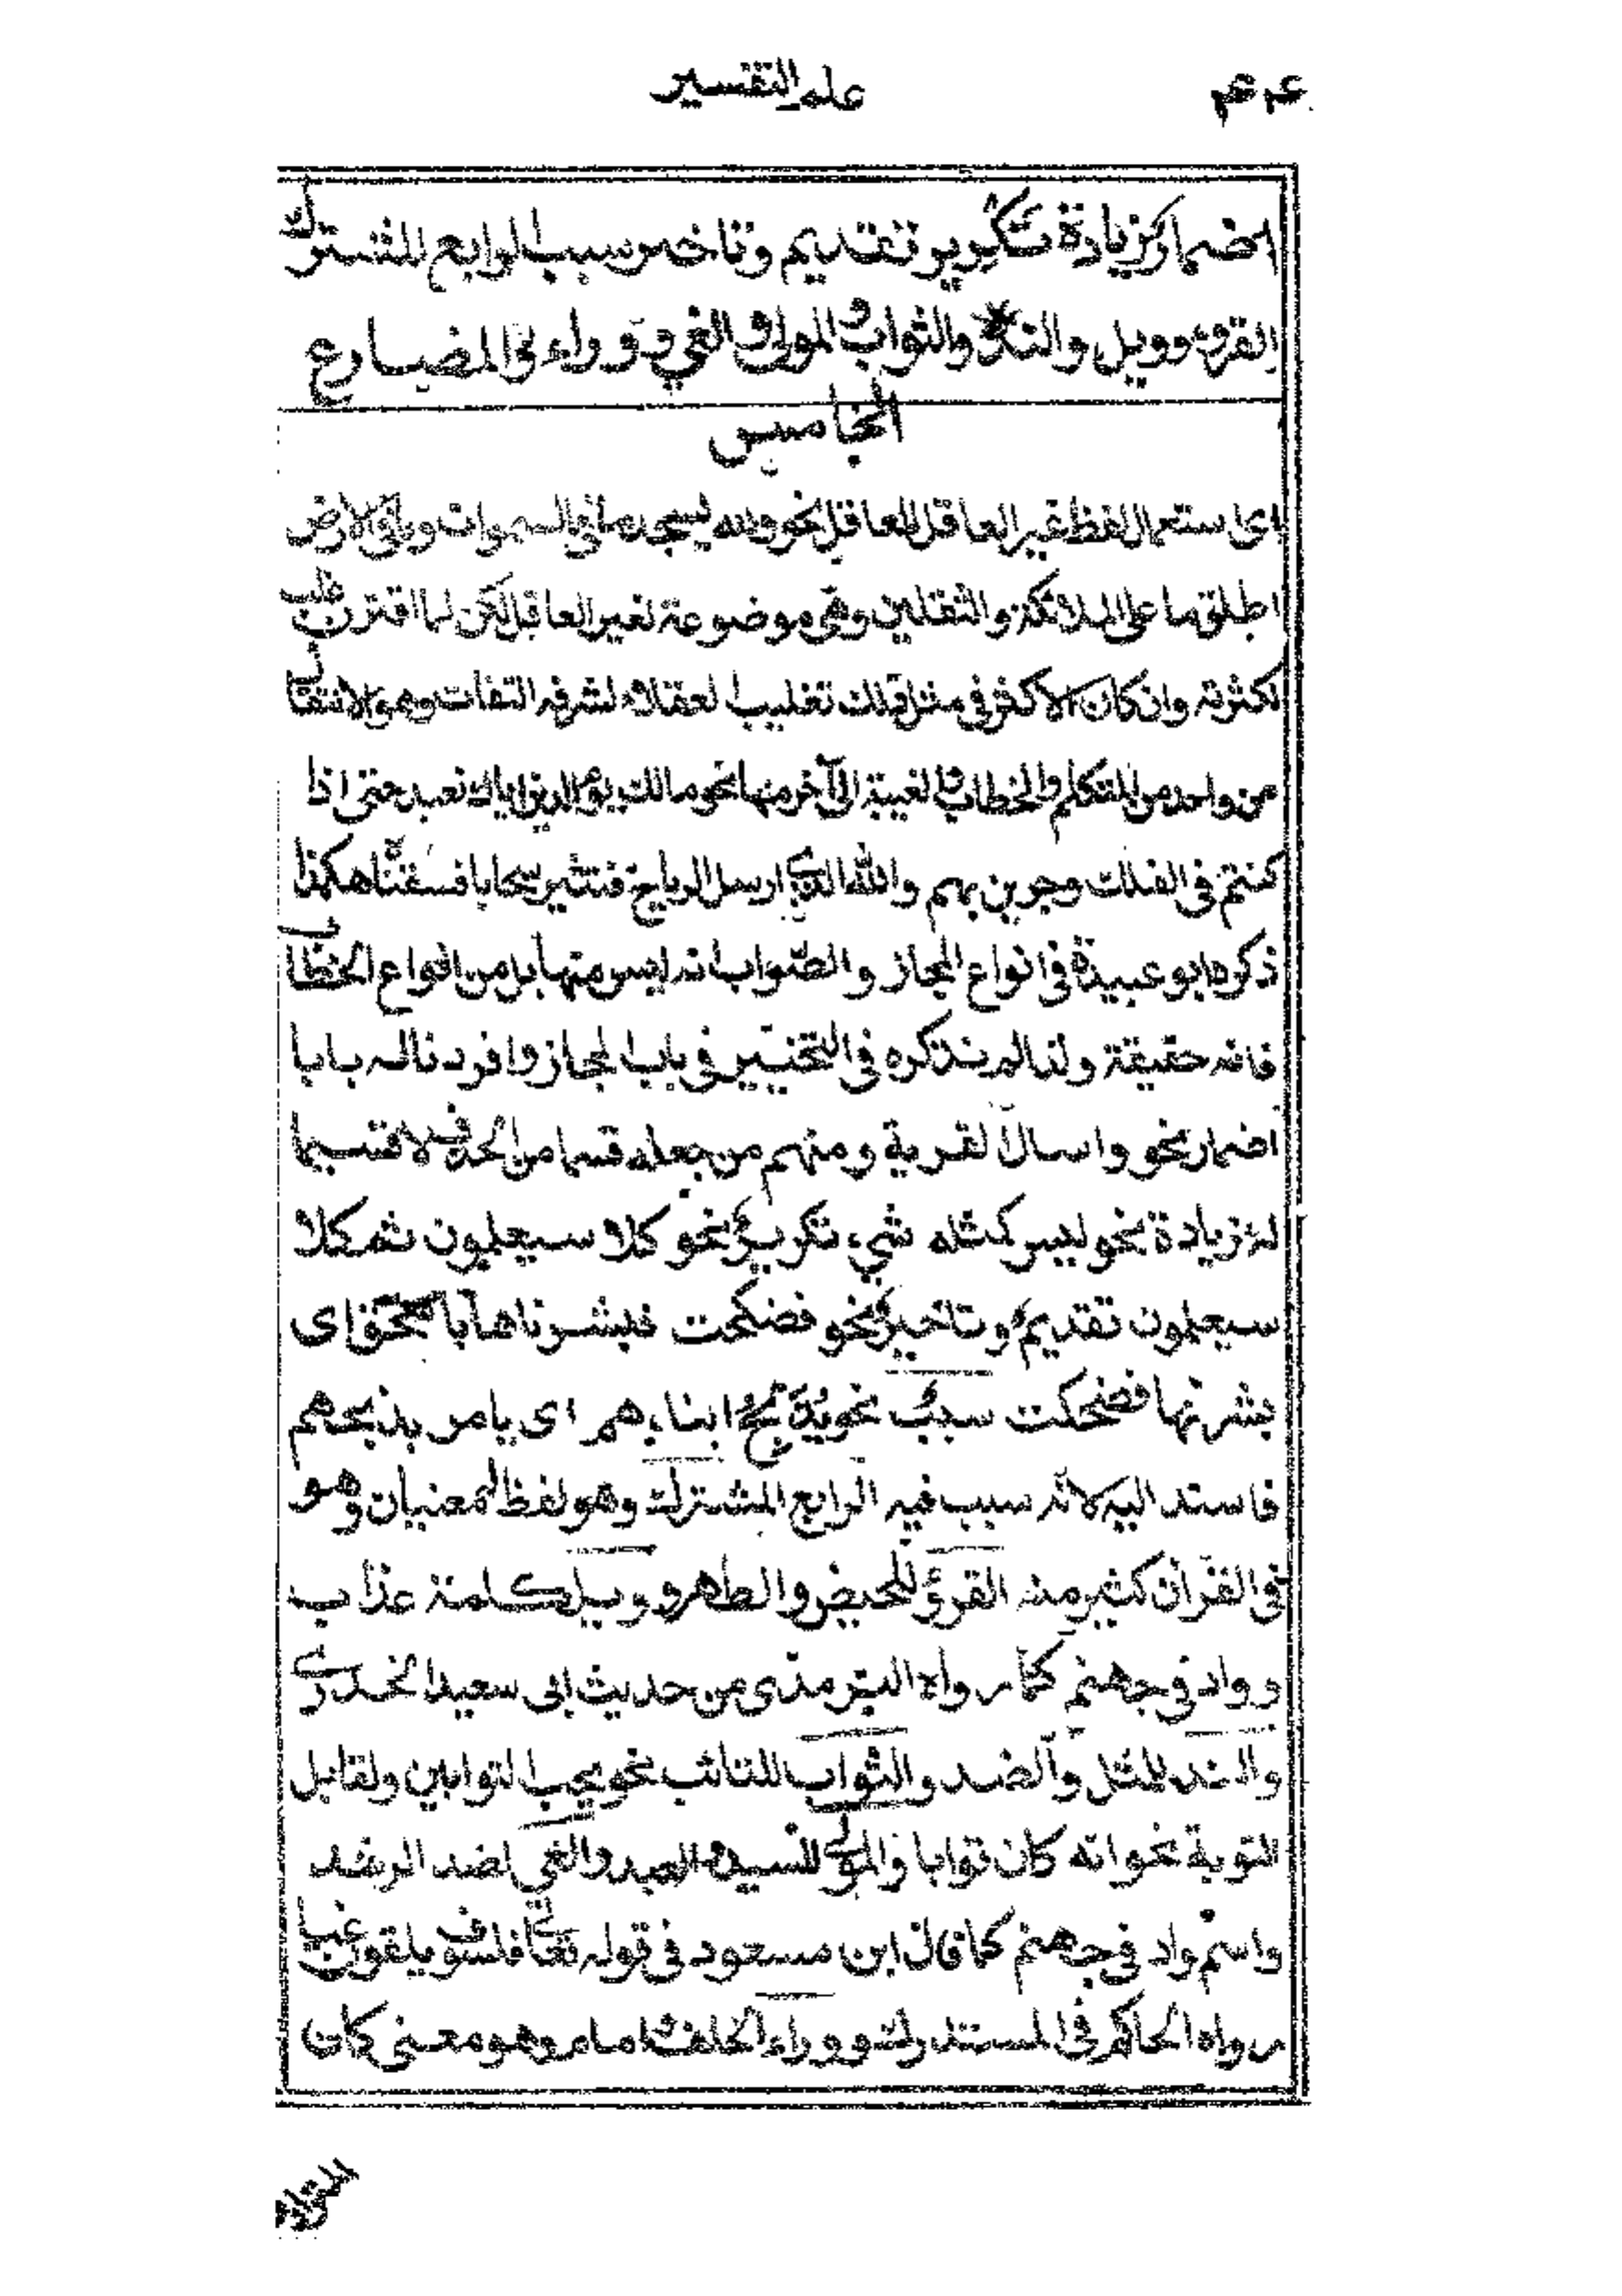 علم التفسير
اضمار زيادة تكرير تقديم وتاخير سبب الرابع المشترك
القرء وويل والند والثواب والمولى والغي ووراء والمضارع
الخامس
اى استعمال لفظ غير العاقل للعاقل نحو ولله يسجد ما فى السموات وما فى الارض
اطلق ما على الملائكة والثقلين وهى موضوعة لغير العاقل لكن لما اقترن غلب
لكثرته وان كان الاكثر فى مثل ذلك تغليب العقلاء لشرفه التفات وهو الانتقال
من واحد من المتكلم والخطاب والغيبة الى آخر منها نحو مالك يوم الدين اياك نعبد حتى اذا
كنتم فى الفلك وجرين بهم والله الذى ارسل الرياح فتثير سحابا فسقناه هكذا
ذكره ابو عبيدة فى انواع المجاز والصواب انه ليس منها بل من انواع الخطاب
فانه حقيقة ولذا لم نذكره فى التحبير فى باب المجاز وافردنا له بابا
اضمار نحو واسال القرية ومنهم من جعله قسما من الحذف لا قسيما
له زيادة نحو ليس كمثله شيء تكرير نحو كلا سيعلمون ثم كلا
سيعلمون تقديم وتاخير نحو فضحكت فبشرناها باسحق اى
بشرنها فضحكت سبب نحو يذبح ابناءهم اى يامر بذبحهم
فاسند اليه لانه سبب فيه الرابع المشترك وهو لفظ له معنيان وهو
فى القرآن كثير منه القرء للحيض والطهر وويل كلمة عذاب
وواد فى جهنم كما رواه الترمذى من حديث ابى سعيد الخدرى
والند للمثل والضد والثواب للتائب نحو يحب التوابين ولقابل
التوبة نحو انه كان توابا والمولى للسيد والعبد والغي لضد الرشد
واسم واد فى جهنم كما قال ابن مسعود فى قوله تعالى فسوف يلقون غيا
رواه الحاكم فى المستدرك ووراء لخلف وامام وهو معنى كان